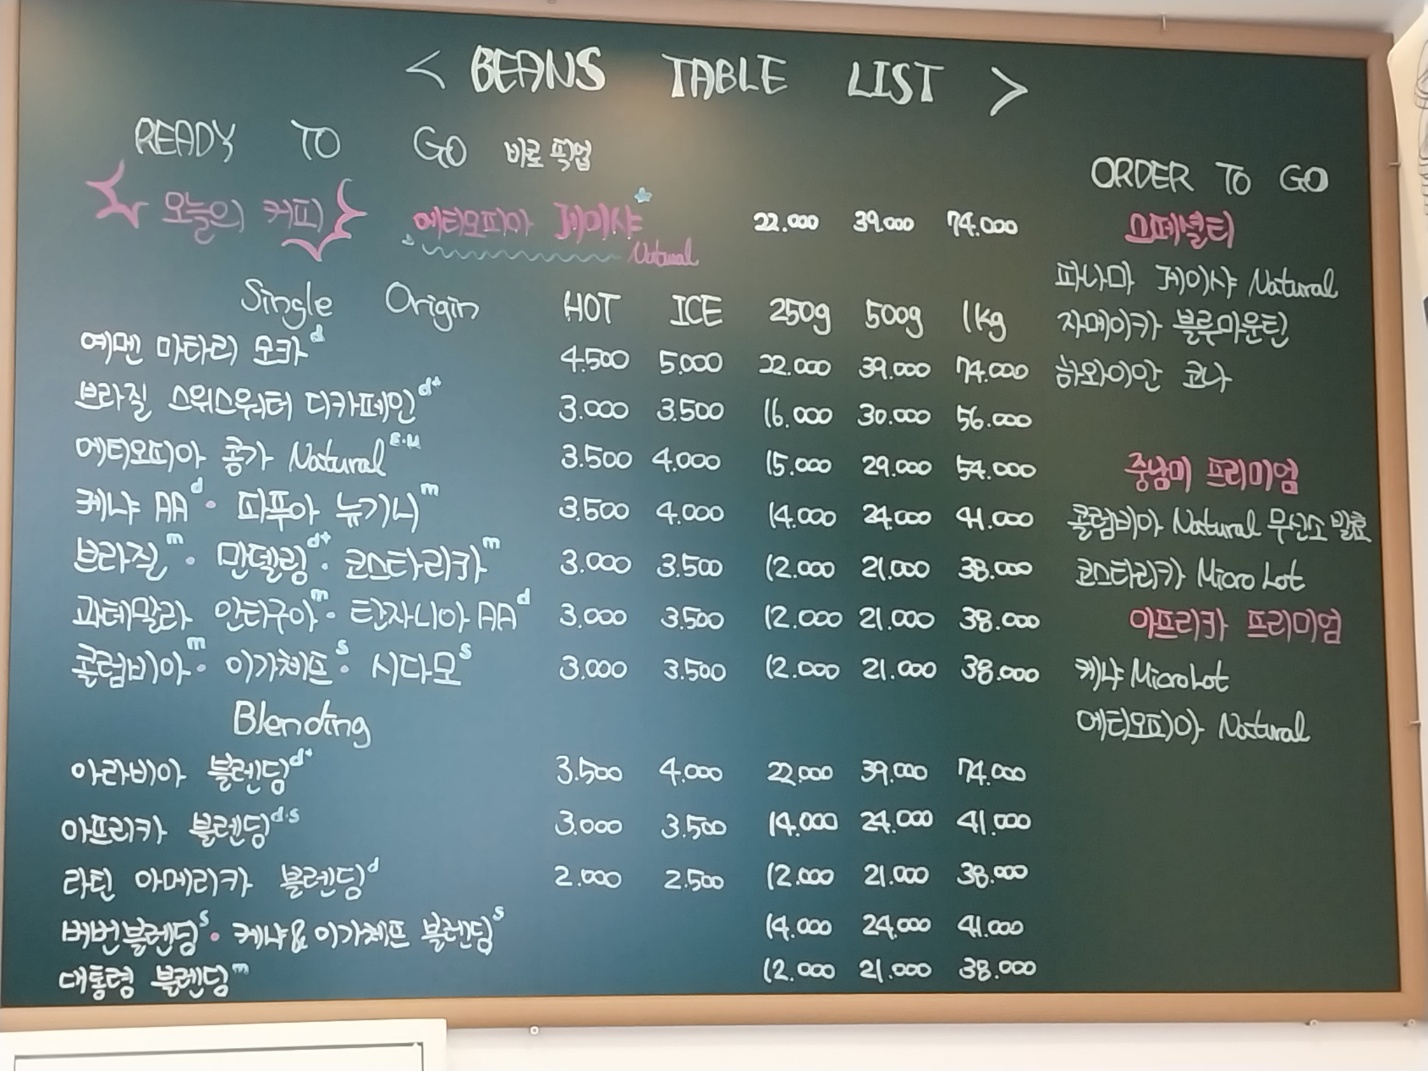 < BEANS TABLE LIST >
READY TO GO 바로 픽업
오늘의 커피 에티오피아 게이샤 Natural 22.000 39.000 74.000
Single Origin HOT ICE 250g 500g 1kg
예멘 마타리 모카 d 4.500 5.000 22.000 39.000 74.000
브라질 스위스워터 디카페인 d+ 3.000 3.500 16.000 30.000 56.000
에티오피아 콩가 Natural E·M 3.500 4.000 15.000 29.000 54.000
케냐 AA d · 파푸아 뉴기니 m 3.500 4.000 14.000 24.000 41.000
브라질 m · 만델링 d+ · 코스타리카 m 3.000 3.500 12.000 21.000 38.000
과테말라 안티구아 m · 탄자니아 AA d 3.000 3.500 12.000 21.000 38.000
콜럼비아 m · 이가체프 s · 시다모 s 3.000 3.500 12.000 21.000 38.000
Blending
아라비아 블렌딩 d+ 3.500 4.000 22.000 39.000 74.000
아프리카 블렌딩 d·s 3.000 3.500 14.000 24.000 41.000
라틴 아메리카 블렌딩 d 2.000 2.500 12.000 21.000 38.000
버번블렌딩 s · 케냐&이가체프 블렌딩 s 14.000 24.000 41.000
대통령 블렌딩 m 12.000 21.000 38.000
ORDER TO GO
스페셜티
파나마 게이샤 Natural
자메이카 블루마운틴
하와이안 코나
중남미 프리미엄
콜럼비아 Natural 무산소 발효
코스타리카 Micro Lot
아프리카 프리미엄
케냐 MicroLot
에티오피아 Natural